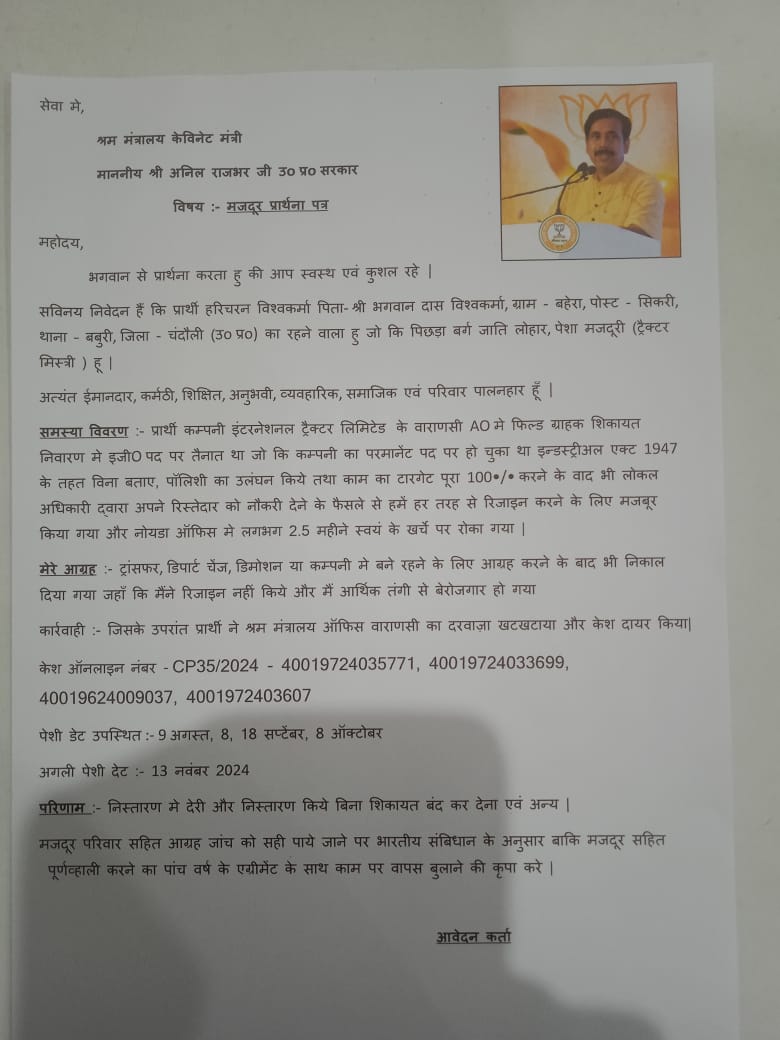 सेवा मे,
श्रम मंत्रालय केविनेट मंत्री
माननीय श्री अनिल राजभर जी उ० प्र० सरकार
विषय :- मजदूर प्रार्थना पत्र
महोदय,
भगवान से प्रार्थना करता हु की आप स्वस्थ एवं कुशल रहे |
सविनय निवेदन हैं कि प्रार्थी हरिचरन विश्वकर्मा पिता- श्री भगवान दास विश्वकर्मा, ग्राम - बहेरा, पोस्ट - सिकरी,
थाना - बबुरी, जिला - चंदौली (उ० प्र०) का रहने वाला हु जो कि पिछड़ा बर्ग जाति लोहार, पेशा मजदूरी (ट्रैक्टर
मिस्त्री ) हू |
अत्यंत ईमानदार, कर्मठी, शिक्षित, अनुभवी, व्यवहारिक, समाजिक एवं परिवार पालनहार हूँ |
समस्या विवरण :- प्रार्थी कम्पनी इंटरनेशनल ट्रैक्टर लिमिटेड के वाराणसी AO मे फिल्ड ग्राहक शिकायत
निवारण मे इजीO पद पर तैनात था जो कि कम्पनी का परमानेंट पद पर हो चुका था इन्डस्ट्रीअल एक्ट 1947
के तहत विना बताए, पॉलिशी का उलंघन किये तथा काम का टारगेट पूरा 100•/• करने के वाद भी लोकल
अधिकारी द्वारा अपने रिस्तेदार को नौकरी देने के फैसले से हमें हर तरह से रिजाइन करने के लिए मजबूर
किया गया और नोयडा ऑफिस मे लगभग 2.5 महीने स्वयं के खर्चे पर रोका गया |
मेरे आग्रह :- ट्रांसफर, डिपार्ट चेंज, डिमोशन या कम्पनी मे बने रहने के लिए आग्रह करने के बाद भी निकाल
दिया गया जहाँ कि मैंने रिजाइन नहीं किये और मैं आर्थिक तंगी से बेरोजगार हो गया
कार्रवाही :- जिसके उपरांत प्रार्थी ने श्रम मंत्रालय ऑफिस वाराणसी का दरवाज़ा खटखटाया और केश दायर किया|
केश ऑनलाइन नंबर - CP35/2024 - 40019724035771, 40019724033699,
40019624009037, 4001972403607
पेशी डेट उपस्थित :- 9 अगस्त, 8, 18 सप्टेंबर, 8 ऑक्टोबर
अगली पेशी देट :- 13 नवंबर 2024
परिणाम :- निस्तारण मे देरी और निस्तारण किये बिना शिकायत बंद कर देना एवं अन्य |
मजदूर परिवार सहित आग्रह जांच को सही पाये जाने पर भारतीय संबिधान के अनुसार बाकि मजदूर सहित
पूर्णव्हाली करने का पांच वर्ष के एग्रीमेंट के साथ काम पर वापस बुलाने की कृपा करे |
आवेदन कर्ता